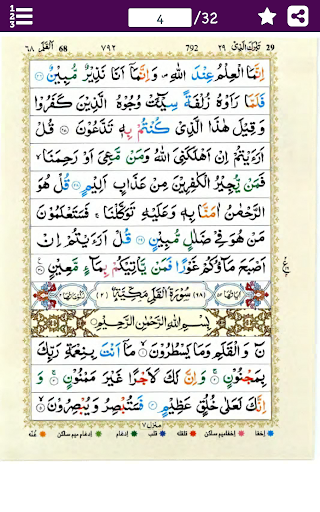 4 /32
٦٨ اَلْقَلَم 68 ٧٩٢ 792 تَبٰرَكَ الَّذِیْ ٢٩ 29
اِنَّمَا الْعِلْمُ عِنْدَ اللّٰهِ وَاِنَّمَاۤ اَنَا نَذِیْرٌ مُّبِیْنٌ ۝٢٦
فَلَمَّا رَاَوْهُ زُلْفَةً سِیْٓـَٔتْ وُجُوْهُ الَّذِیْنَ كَفَرُوْا
وَقِیْلَ هٰذَا الَّذِیْ كُنْتُمْ بِهٖ تَدَّعُوْنَ ۝٢٧ قُلْ
اَرَءَیْتُمْ اِنْ اَهْلَكَنِیَ اللّٰهُ وَمَنْ مَّعِیَ اَوْ رَحِمَنَا ۙ
فَمَنْ یُّجِیْرُ الْكٰفِرِیْنَ مِنْ عَذَابٍ اَلِیْمٍ ۝٢٨ قُلْ هُوَ
الرَّحْمٰنُ اٰمَنَّا بِهٖ وَعَلَیْهِ تَوَكَّلْنَا ۚ فَسَتَعْلَمُوْنَ
مَنْ هُوَ فِیْ ضَلٰلٍ مُّبِیْنٍ ۝٢٩ قُلْ اَرَءَیْتُمْ اِنْ
اَصْبَحَ مَآؤُكُمْ غَوْرًا فَمَنْ یَّاْتِیْكُمْ بِمَآءٍ مَّعِیْنٍ ۝٣٠
اٰیَاتُهَا ٥٢ (٦٨) سُوْرَةُ الْقَلَمِ مَكِّیَّةٌ (٢) رُكُوْعَاتُهَا ٢
بِسْمِ اللّٰهِ الرَّحْمٰنِ الرَّحِیْمِ
نٓ وَالْقَلَمِ وَمَا یَسْطُرُوْنَ ۝١ مَاۤ اَنْتَ بِنِعْمَةِ رَبِّكَ
بِمَجْنُوْنٍ ۝٢ وَاِنَّ لَكَ لَاَجْرًا غَیْرَ مَمْنُوْنٍ ۝٣ وَ
اِنَّكَ لَعَلٰی خُلُقٍ عَظِیْمٍ ۝٤ فَسَتُبْصِرُ وَیُبْصِرُوْنَ ۝٥
منزل ٧
اخفا اخفامیم ساکن قلقله قلب ادغام ادغام میم ساکن غنّه